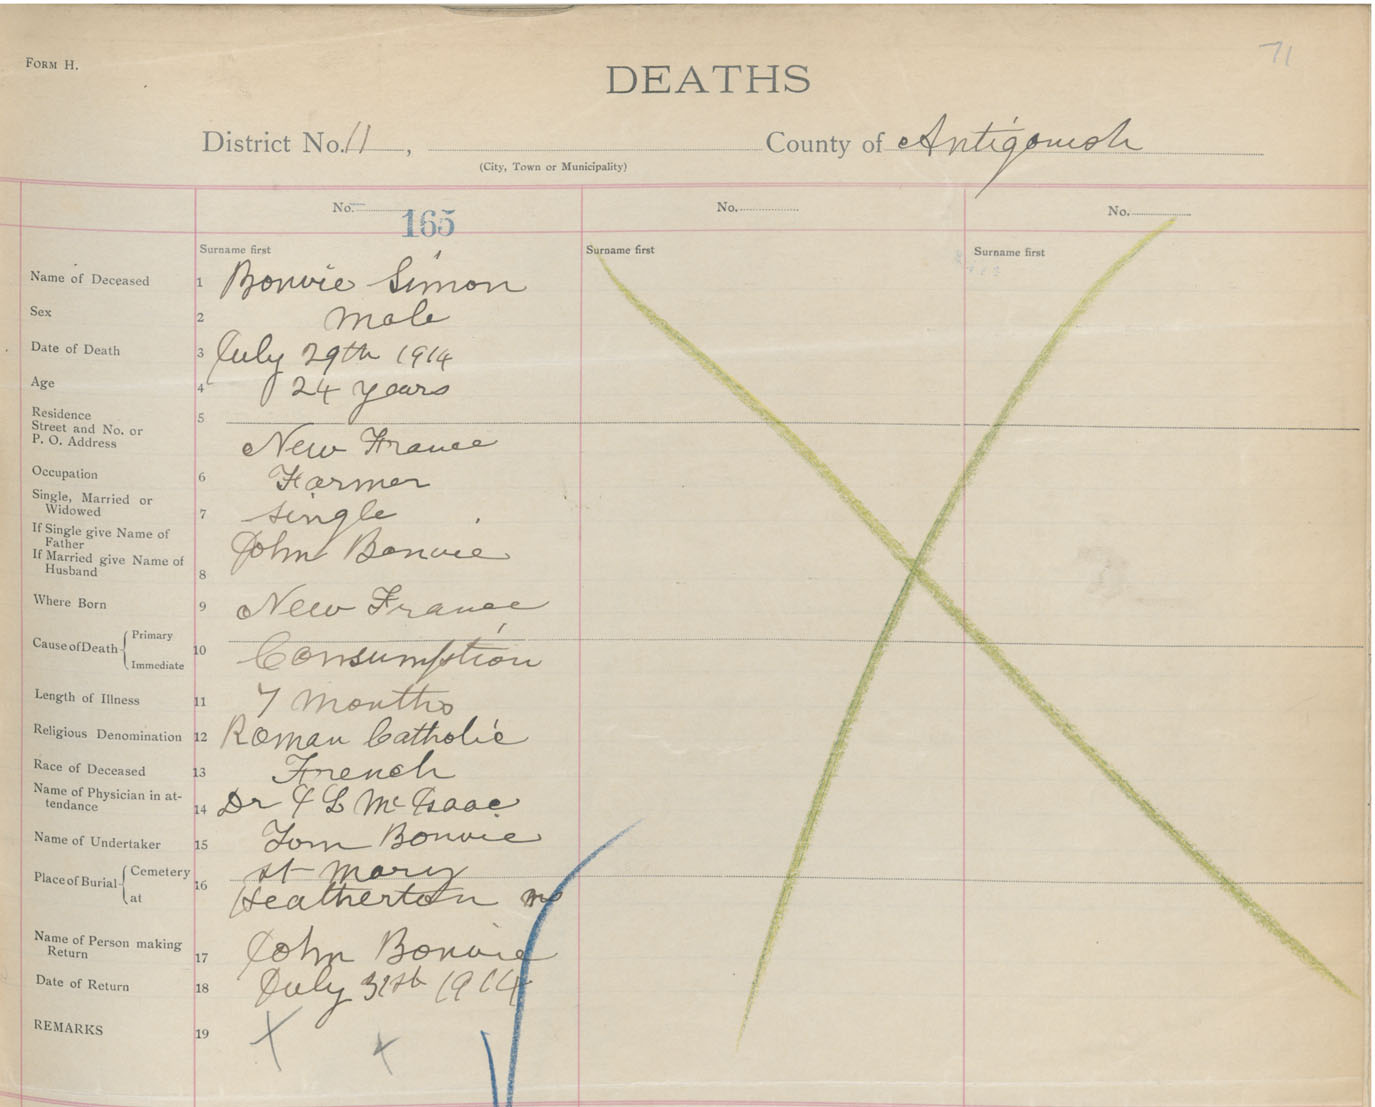 71
FORM H.
DEATHS
District No. 11, County of Antigonish
(City, Town or Municipality)
No. 165 No. No.
Surname first Surname first Surname first
Name of Deceased 1 Bonvie Simon
Sex 2 male
Date of Death 3 July 29th 1914
Age 4 24 years
Residence
Street and No. or
P. O. Address 5 New France
Occupation 6 Farmer
Single, Married or
Widowed 7 single
If Single give Name of
Father
If Married give Name of
Husband 8 John Bonvie
Where Born 9 New France
Cause of Death Primary
Immediate 10 Consumption
Length of Illness 11 7 months
Religious Denomination 12 Roman Catholic
Race of Deceased 13 French
Name of Physician in at-
tendance 14 Dr McIsaac
Name of Undertaker 15 Tom Bonvie
Place of Burial Cemetery 16 st mary
at Heatherton
Name of Person making
Return 17 John Bonvie
Date of Return 18 July 31st 1914
REMARKS 19 X x